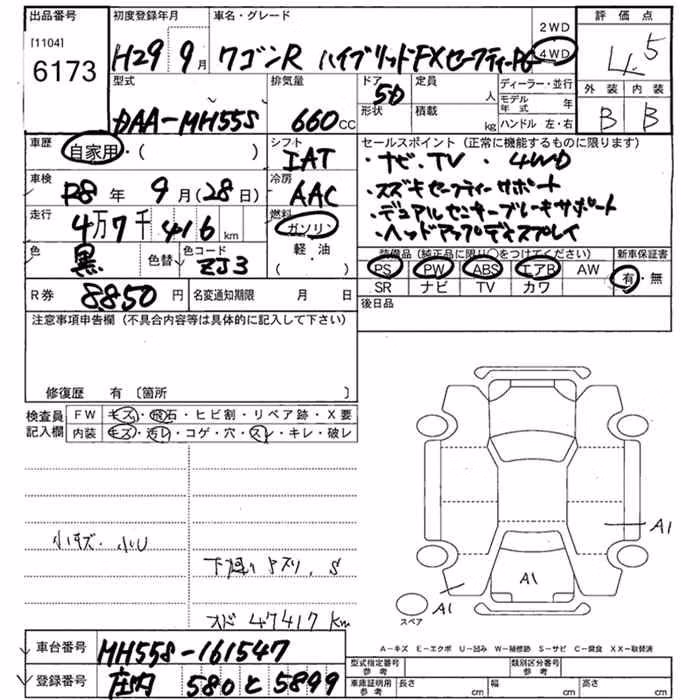 出品番号 初度登録年月 車名・グレード 2WD 評価点
[1104] 6173 H29年 9月 ワゴンR ハイブリッドFXセーフティーPG 4WD 4.5
型式 排気量 ドア 定員 人 ディーラー・並行 外装 内装
DAA-MH55S 660cc 5D 形状 積載 kg モデル年式 年 ハンドル 左・右 B B
車歴 自家用・( ) シフト IAT セールスポイント(正常に機能するものに限ります)
・ナビ.TV ・4WD
車検 R8年 9月(28日) 冷房 AAC ・スズキセーフティーサポート
走行 4万7千416km 燃料 ガソリン ・デュアルセンサーブレーキサポート
軽・油 ・ヘッドアップディスプレイ
色 黒 色替 色コード ZJ3 ( ) 装備品(純正品に限り○をつけてください) 新車保証書
PS PW ABS エアB AW 有・無
R券 8850円 名変通知期限 月 日 SR ナビ TV カワ
注意事項申告欄(不具合内容等は具体的に記入して下さい) 後日品
修復歴 有〔箇所 〕
検査員記入欄 FW キズ・飛石・ヒビ割・リペア跡・X要
内装 キズ・汚レ・コゲ・穴・スレ・キレ・破レ
小キズ・小U
S
47417km
A1
A1
A1
スペア
A-キズ E-エクボ U-凹み W-補修跡 S-サビ C-腐食 XX-取替済
車台番号 MH55S-161547
型式指定番号 参考 類別区分番号 参考
登録番号 庄内 580 と 5899
車庫証明用 参考 長さ cm 幅 cm 高さ cm